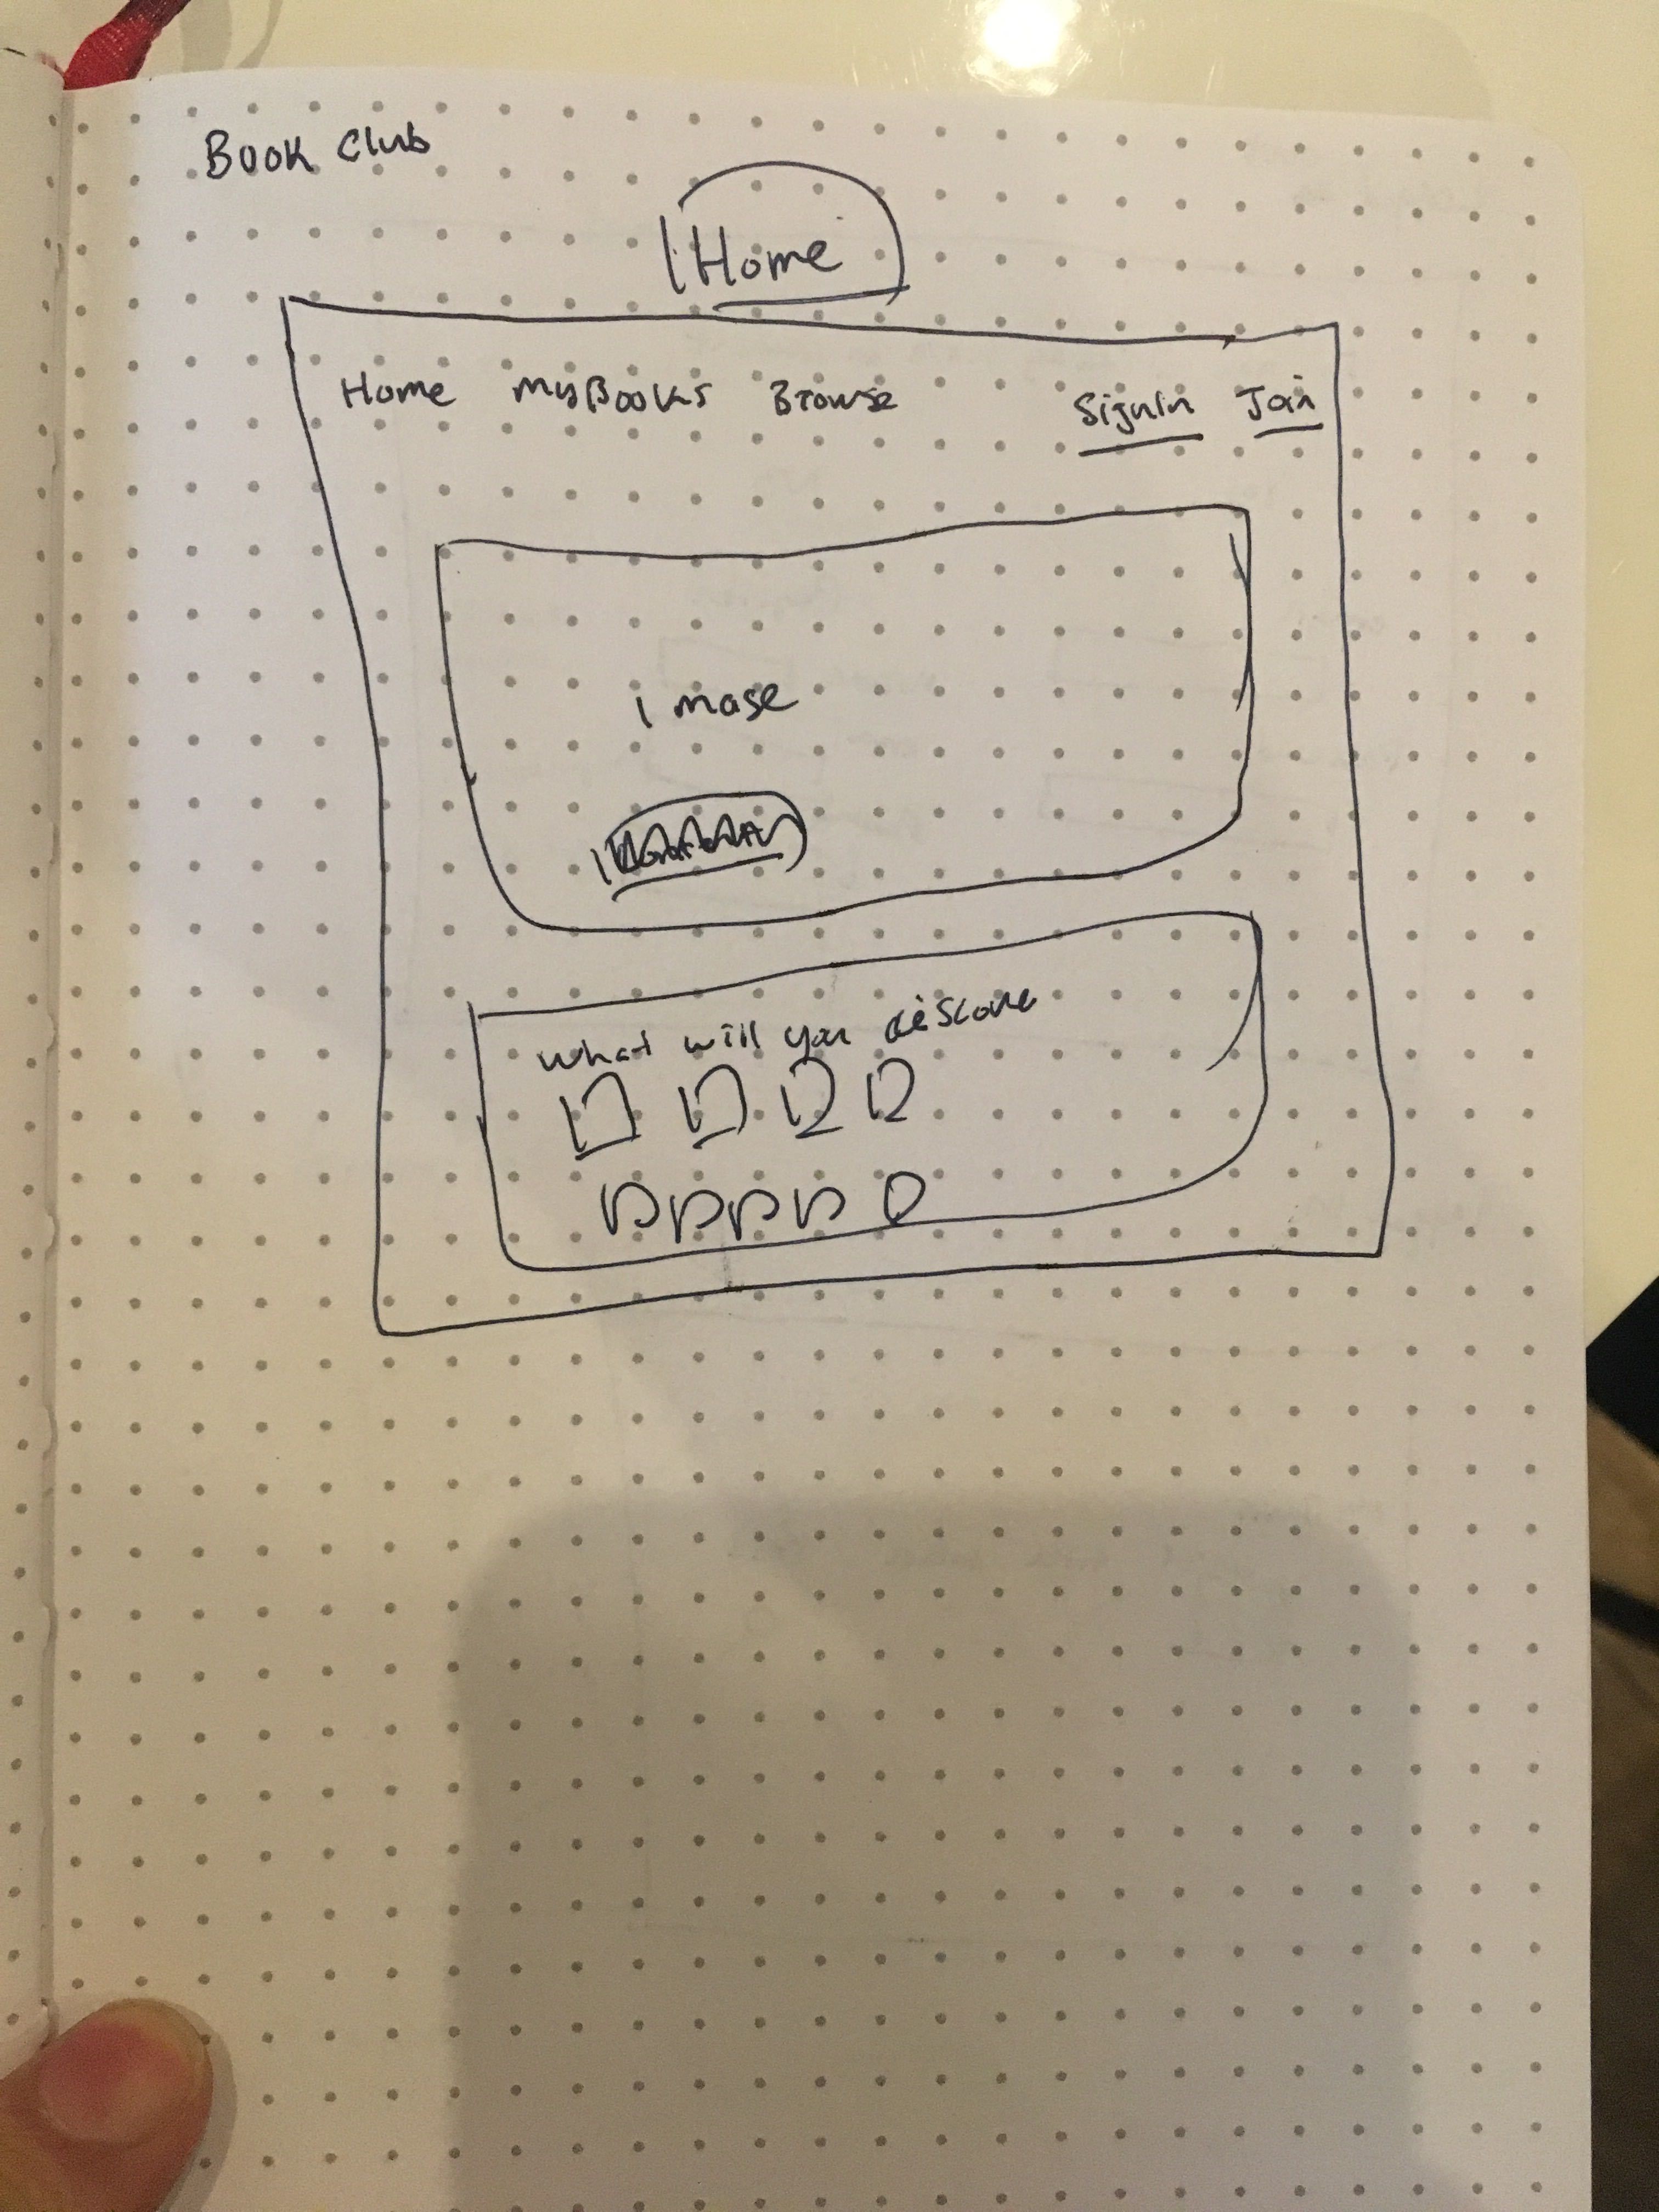 Book Club
Home
Home MyBooks Browse SignIn Join
image
what will you discover